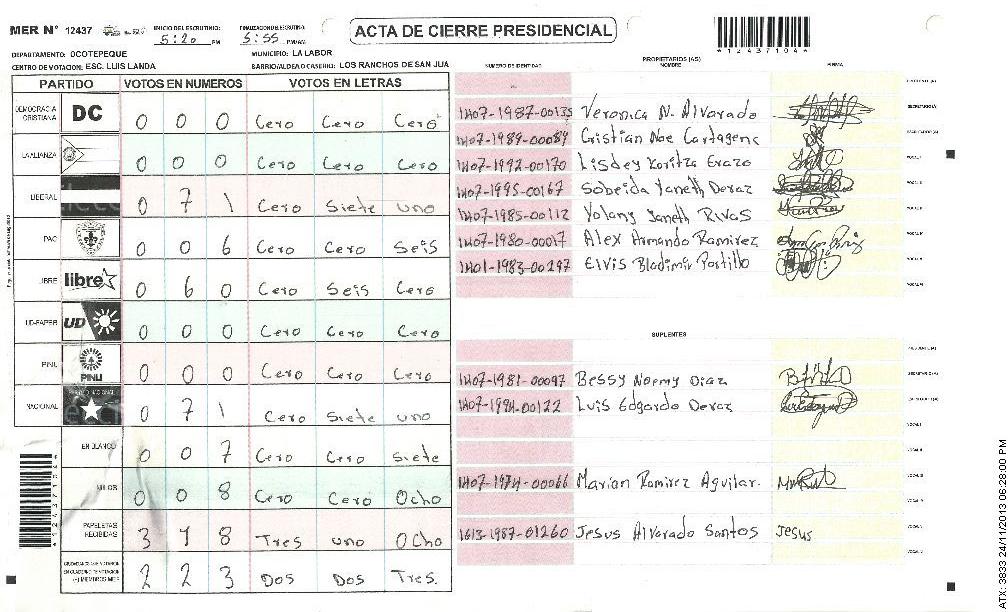 MER N° 12437
INICIO DEL ESCRUTINIO: 5:20 PM
FINALIZACION DEL ESCRUTINIO: 5:55 PM/AM
ACTA DE CIERRE PRESIDENCIAL
*12437104*
DEPARTAMENTO: OCOTEPEQUE
MUNICIPIO: LA LABOR
CENTRO DE VOTACION: ESC. LUIS LANDA
BARRIO/ALDEA O CASERIO: LOS RANCHOS DE SAN JUA
PARTIDO VOTOS EN NUMEROS VOTOS EN LETRAS
DEMOCRACIA CRISTIANA DC 0 0 0 Cero Cero Cero
LA ALIANZA 0 0 0 Cero Cero Cero
LIBERAL 0 7 1 Cero Siete uno
PAC 0 0 6 Cero Cero Seis
LIBRE libre 0 6 0 Cero Seis Cero
UD-FAPER UD 0 0 0 Cero Cero Cero
PINU PINU 0 0 0 Cero Cero Cero
NACIONAL 0 7 1 Cero Siete uno
EN BLANCO 0 0 7 Cero Cero Siete
NULOS 0 0 8 Cero Cero Ocho
PAPELETAS RECIBIDAS 3 1 8 Tres uno Ocho
2 2 3 Dos Dos Tres.
PROPIETARIOS (AS)
NUMERO DE IDENTIDAD NOMBRE FIRMA
PRESIDENTE (A)
1407-1987-00135 Veronica N. Alvarado SECRETARIO/A
1407-1989-00089 Cristian Noe Cartagena ESCRUTADOR(A)
1407-1992-00170 Lisdey Karitza Erazo VOCAL I
1407-1995-00167 Sobeida Yaneth Deras VOCAL II
1407-1985-00112 Yolany Janeth Rivas VOCAL III
1407-1980-00017 Alex Armando Ramirez VOCAL IV
1401-1983-00297 Elvis Bladimir Portillo VOCAL V
SUPLENTES
1407-1981-00097 Bessy Noemy Diaz
1407-1994-00122 Luis Edgardo Deras
1407-1974-00066 Marian Ramirez Aguilar.
1613-1987-01260 Jesus Alvarado Santos Jesus
ATX: 3833 24/11/2013 06:28:00 PM